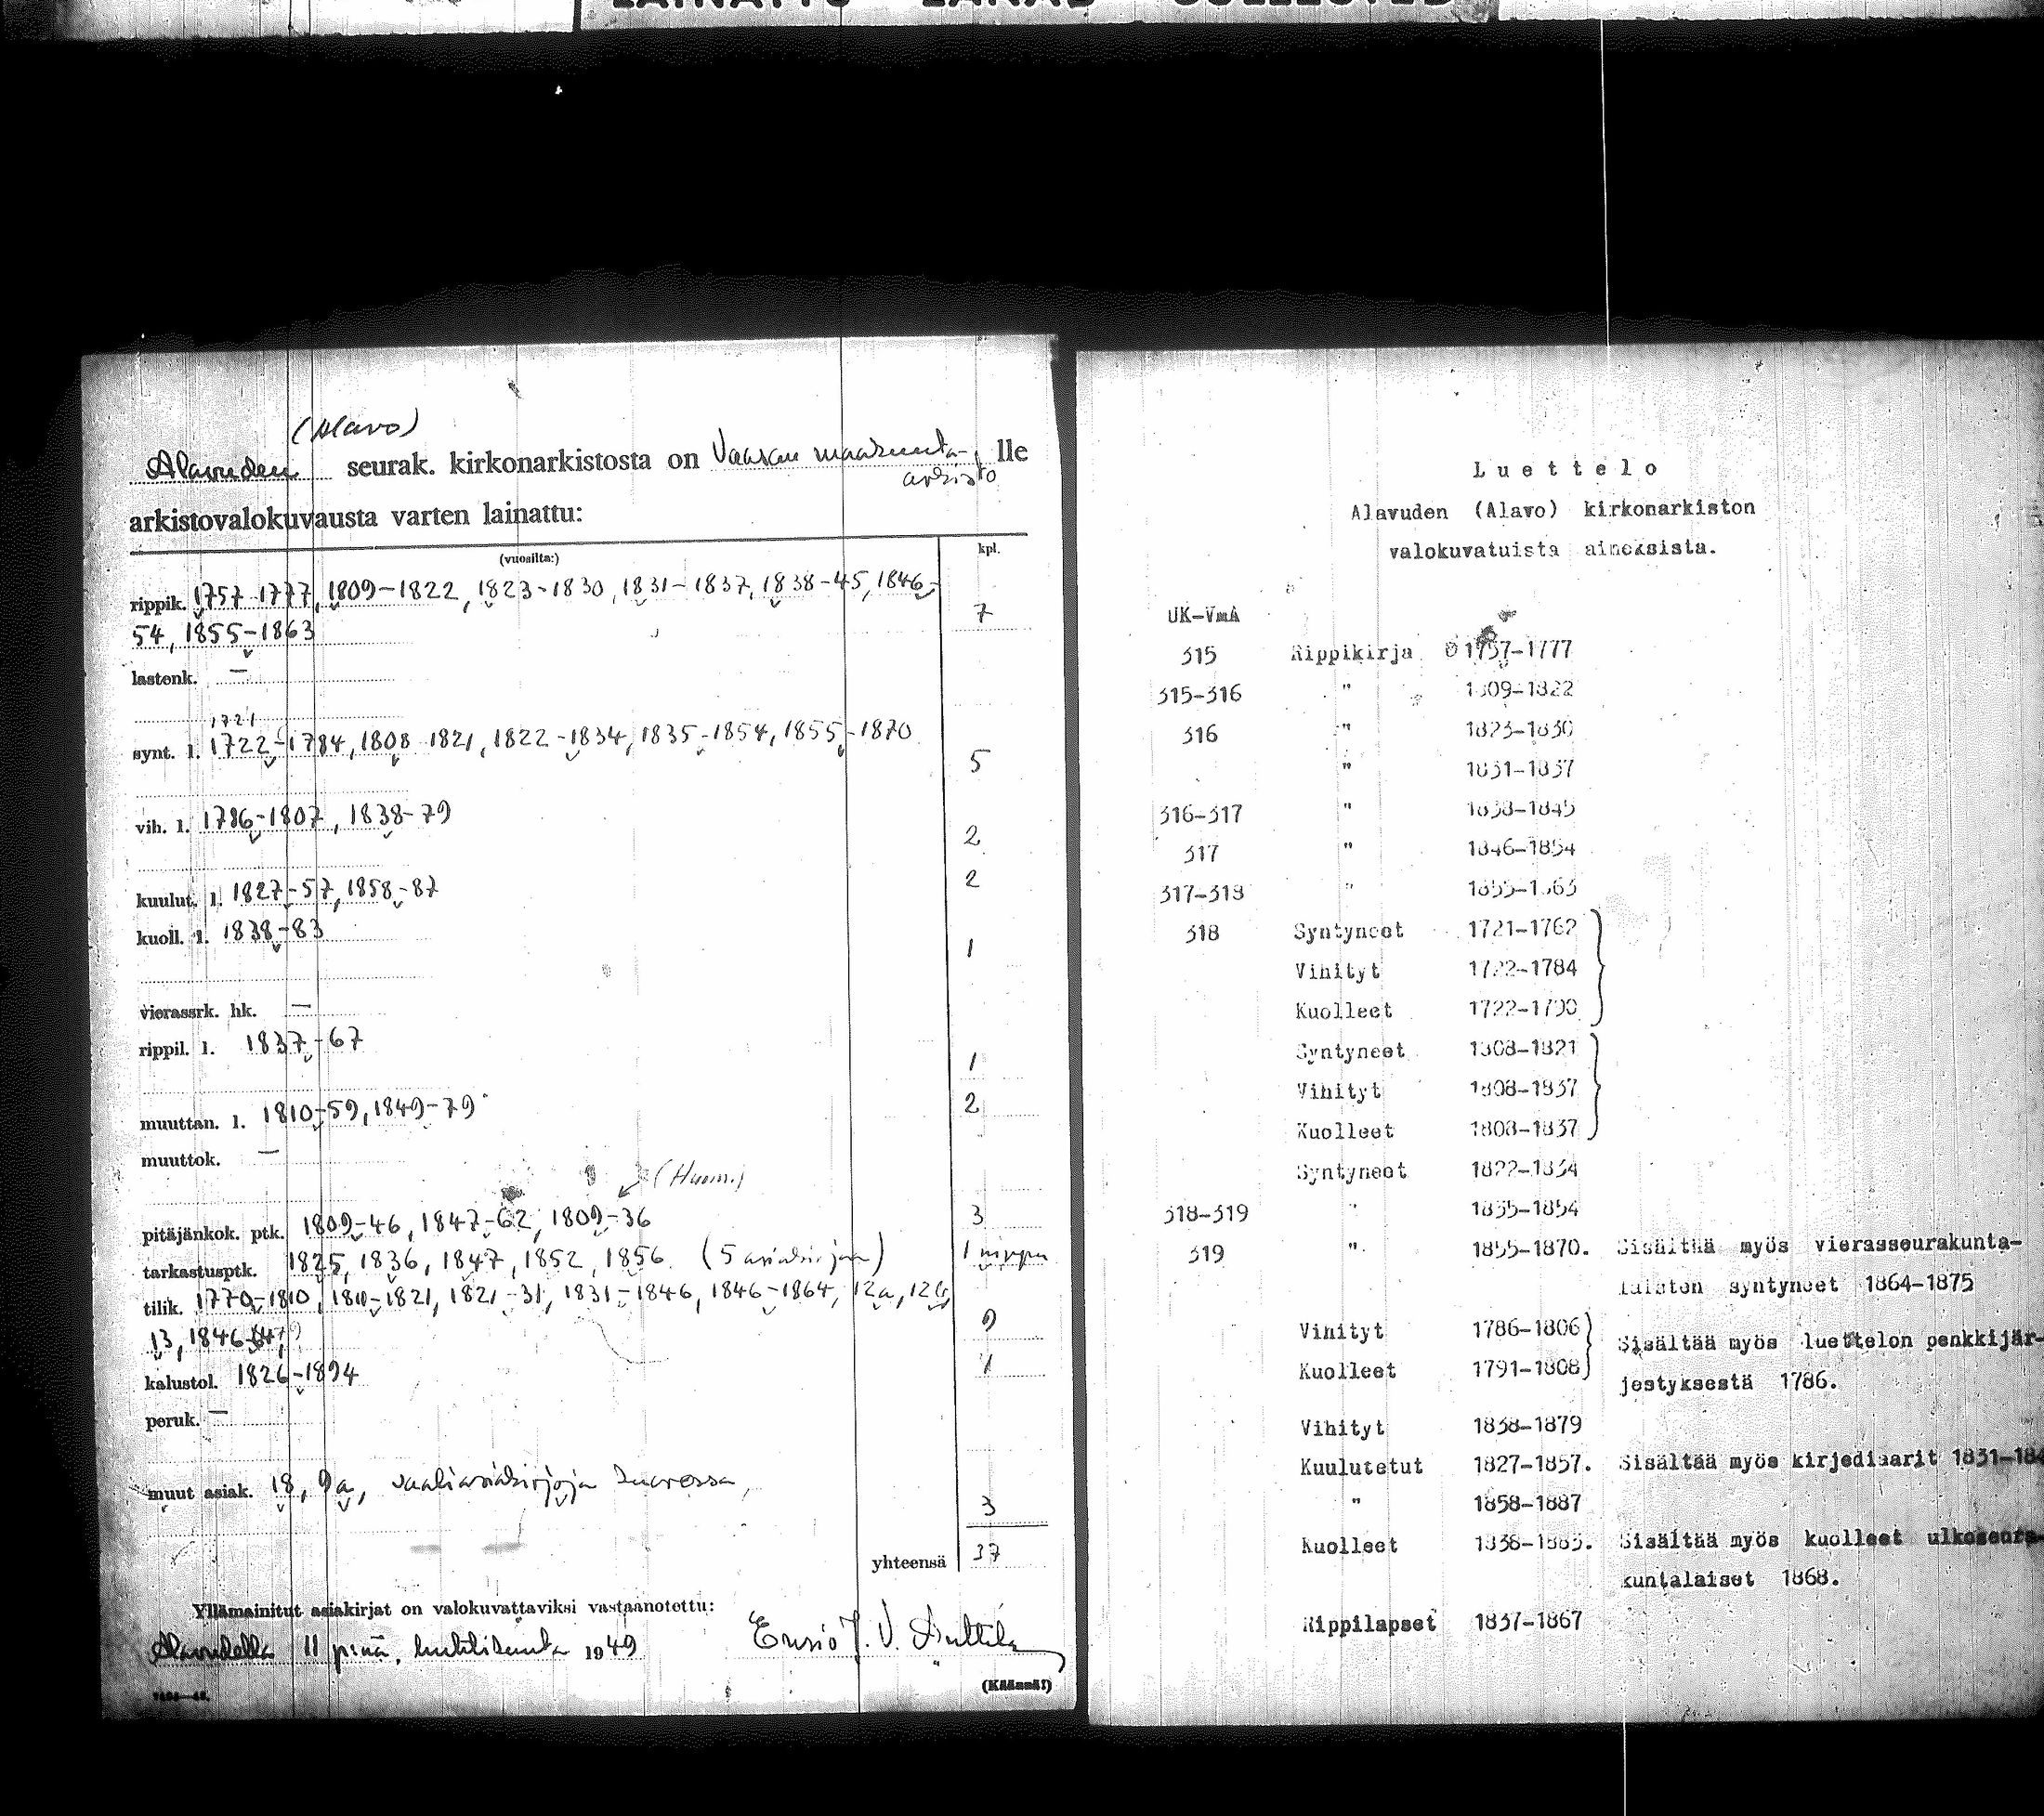 LAINATTU LÅNAD COLLECTED
(Alavo)
Alavuden seurak. kirkonarkistosta on Vaasan maakunta- lle
arkisto
arkistovalokuvausta varten lainattu:
(vuosilta:) kpl.
rippik. 1757-1777, 1809-1822, 1823-1830, 1831-1837, 1838-45, 1846-
54, 1855-1863 7
lastenk. —
1721
synt. l. 1722-1784, 1808-1821, 1822-1834, 1835-1854, 1855-1870 5
vih. l. 1786-1807, 1838-79 2
kuulut. l. 1827-57, 1858-87 2
kuoll. l. 1838-83 1
vierassrk. hk. —
rippil. l. 1837-67 1
muuttan. l. 1810-59, 1849-79 2
muuttok. —
(Huom.)
pitäjänkok. ptk. 1809-46, 1847-62, 1809-36 3
tarkastusptk. 1825, 1836, 1847, 1852, 1856 (5 asiakirjaa) 1 nippu
tilik. 1770-1810, 1810-1821, 1821-31, 1831-1846, 1846-1864, 12a,
13, 9
kalustol. 1826-1894 1
peruk. —
muut asiak. 18, 9a, vaaliasiakirjoja
3
yhteensä 37
Yllämainitut asiakirjat on valokuvattaviksi vastaanotettu:
Alavudella 11 p:nä, huhtikuuta 1949
(Käännä!)
Luettelo
Alavuden (Alavo) kirkonarkiston
valokuvatuista aineksista.
UK-VmA
315 Rippikirja 1757-1777
315-316 " 1809-1822
316 " 1823-1830
" 1831-1837
316-317 " 1838-1845
317 " 1846-1854
317-318 " 1855-1863
318 Syntyneet 1721-1762
Vihityt 1722-1784
Kuolleet 1722-1790
Syntyneet 1808-1821
Vihityt 1808-1837
Kuolleet 1808-1837
Syntyneet 1822-1834
318-319 " 1835-1854
319 " 1855-1870. Sisältää myös vierasseurakunta-
laisten syntyneet 1864-1875
Vihityt 1786-1806
Sisältää myös luettelon penkkijär-
Kuolleet 1791-1808
jestyksestä 1786.
Vihityt 1838-1879
Kuulutetut 1827-1857. Sisältää myös kirjediaarit 1831-18
" 1858-1887
Kuolleet 1838-1883. Sisältää myös kuolleet ulkoseura-
kuntalaiset 1868.
Rippilapset 1837-1867